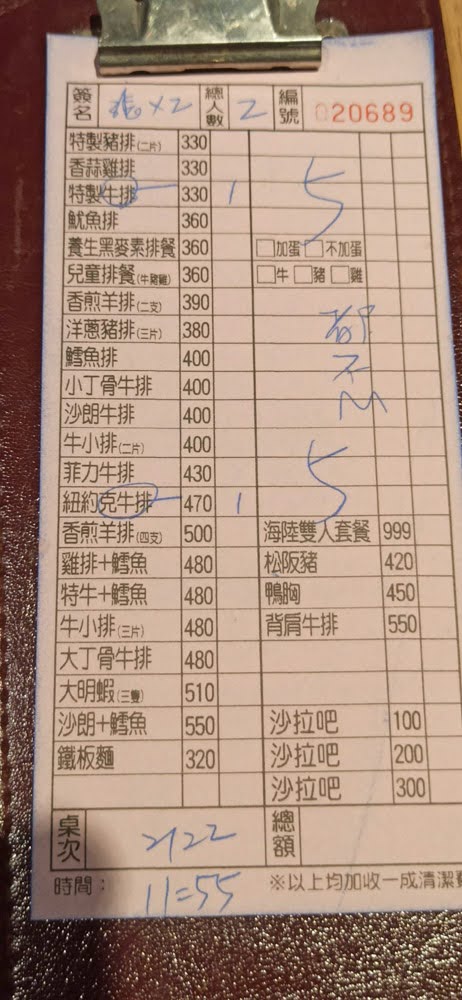 簽名 x2 總人數 2 編號 020689
特製豬排(二片) 330
香蒜雞排 330
特製牛排 330 1 5
魷魚排 360
養生黑麥素排餐 360 □加蛋 □不加蛋
兒童排餐(牛豬雞) 360 □牛 □豬 □雞
香煎羊排(二支) 390
洋蔥豬排(三片) 380 都
鱈魚排 400 不
小丁骨牛排 400
沙朗牛排 400
牛小排(二片) 400
菲力牛排 430 5
紐約克牛排 470 1
香煎羊排(四支) 500 海陸雙人套餐 999
雞排+鱈魚 480 松阪豬 420
特牛+鱈魚 480 鴨胸 450
牛小排(三片) 480 背肩牛排 550
大丁骨牛排 480
大明蝦(三隻) 510
沙朗+鱈魚 550 沙拉吧 100
鐵板麵 320 沙拉吧 200
沙拉吧 300
桌次 2122 總額
時間: 11=55 ※以上均加收一成清潔費